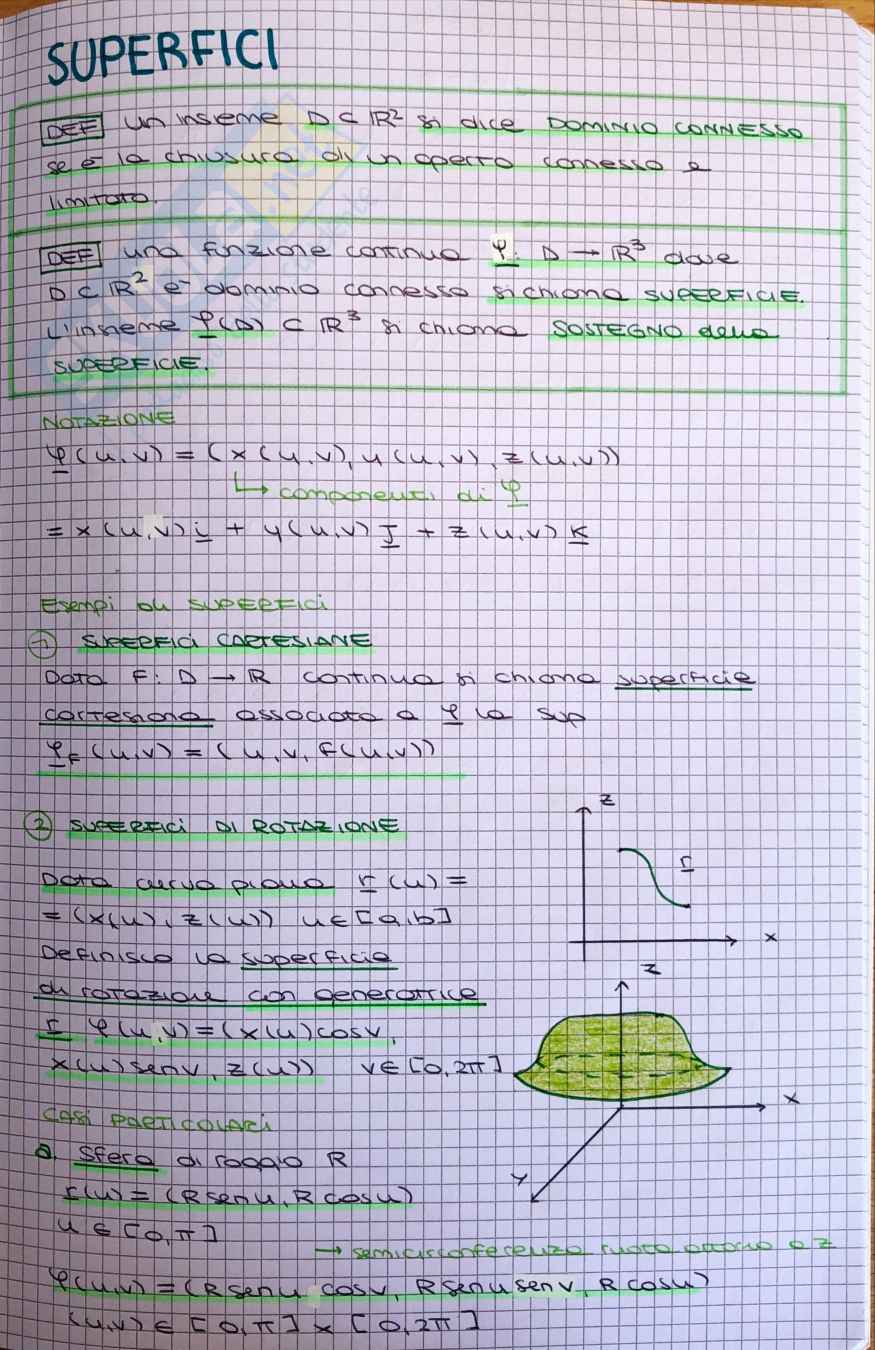 SUPERFICI
DEF un insieme D ⊂ ℝ² si dice DOMINIO CONNESSO
se è la chiusura di un aperto connesso e
limitato.
DEF una funzione continua φ: D → ℝ³ dove
D ⊂ ℝ² e' dominio connesso si chiama SUPERFICIE.
L'insieme φ(D) ⊂ ℝ³ si chiama SOSTEGNO della
SUPERFICIE.
NOTAZIONE
φ(u,v) = (x(u,v), y(u,v), z(u,v))
↳ componenti di φ
= x(u,v) i + y(u,v) J + z(u,v) K
Esempi di SUPERFICI
① SUPERFICI CARTESIANE
Data F: D → ℝ continua si chiama superficie
cartesiana associata a φ la sup
φ_F(u,v) = (u, v, F(u,v))
② SUPERFICI DI ROTAZIONE
Data curva piana r(u) =
= (x(u), z(u)) u ∈ [a,b]
Definisco la superficie
di rotazione con generatrice
r φ(u,v) = (x(u)cosv,
x(u)senv, z(u)) v ∈ [0, 2π]
z
r
x
z
x
y
CASI PARTICOLARI
a. Sfera di raggio R
r(u) = (R senu, R cosu)
u ∈ [0, π]
→ semicirconferenza ruota attorno a z
φ(u,v) = (R senu cosv, R senu senv, R cosu)
(u,v) ∈ [0, π] × [0, 2π]